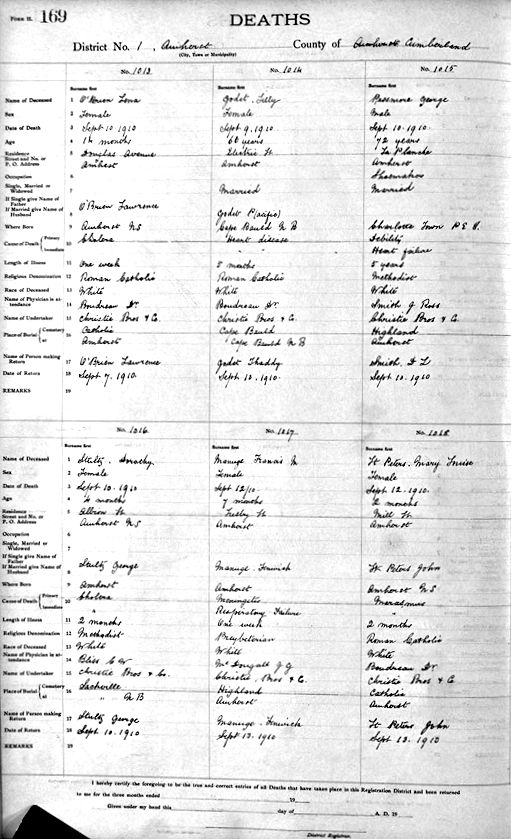 FORM II. 169
DEATHS
District No. 1, Amherst County of Cumberland
(City, Town or Municipality)
No. 1013 No. 1014 No. 1015
Surname first Surname first Surname first
Name of Deceased 1 O'Brien Lona Godet, Lilly Passmore George
Sex 2 Female Female Male
Date of Death 3 Sept 10 1910 Sept 9, 1910 Sept 10. 1910
Age 4 1½ months 60 years 72 years
Residence Street and No. or P. O. Address 5 Douglas Avenue Amherst Electric St Amherst La Planche Amherst
Occupation 6 Shoemaker
Single, Married or Widowed 7 Married Married
If Single give Name of Father If Married give Name of Husband 8 O'Brien Lawrence Godet Pacifio
Where Born 9 Amherst NS Cape Bauld N B Charlotte Town P E I.
Cause of Death Primary Immediate 10 Cholera Heart disease Debility Heart failure
Length of Illness 11 One week 5 months 5 years
Religious Denomination 12 Roman Catholic Roman Catholic Methodist
Race of Deceased 13 White White White
Name of Physician in attendance 14 Boudreau Dr. Boudreau Dr. Smith J Ross
Name of Undertaker 15 Christie Bros & C. Christie Bros & C. Christie Bros & C.
Place of Burial Cemetery at 16 Catholic Amherst Cape Bauld Cape Bauld N B Highland Amherst
Name of Person making Return 17 O'Brien Lawrence Godet Thaddy Smith, D L
Date of Return 18 Sept 7. 1910. Sept 10. 1910. Sept 10. 1910
REMARKS 19
No. 1016 No. 1017 No. 1018
Surname first Surname first Surname first
Name of Deceased 1 Stultz, Dorothy Manuge Francis M St Peters, Mary Louise
Sex 2 Female Female Female
Date of Death 3 Sept 10. 1910 Sept 12/10. Sept 12. 1910.
Age 4 4 months 7 months 2 months
Residence Street and No. or P. O. Address 5 Elbow St Amherst N S St Amherst Mill St Amherst
Occupation 6
Single, Married or Widowed 7
If Single give Name of Father If Married give Name of Husband 8 Stultz George Manuge Fenwick St Peters John
Where Born 9 Amherst Amherst Amherst N S
Cause of Death Primary Immediate 10 Cholera " Meningitis Respiratory Failure Marasmus
Length of Illness 11 2 months One week 2 months
Religious Denomination 12 Methodist Presbyterian Roman Catholic
Race of Deceased 13 White White White
Name of Physician in attendance 14 Bliss C W McDougall J G Boudreau Dr.
Name of Undertaker 15 Christie Bros & Co. Christie Bros & C. Christie Bros & C.
Place of Burial Cemetery at 16 Sackville " N B Highland Amherst Catholic Amherst
Name of Person making Return 17 Stultz George Manuge Fenwick St Peters John
Date of Return 18 Sept 10. 1910 Sept 13. 1910 Sept 13. 1910
REMARKS 19
I hereby certify the foregoing to be the true and correct entries of all Deaths that have taken place in this Registration District and been returned
to me for the three months ended 19
Given under my hand this day of A. D. 19
District Registrar.